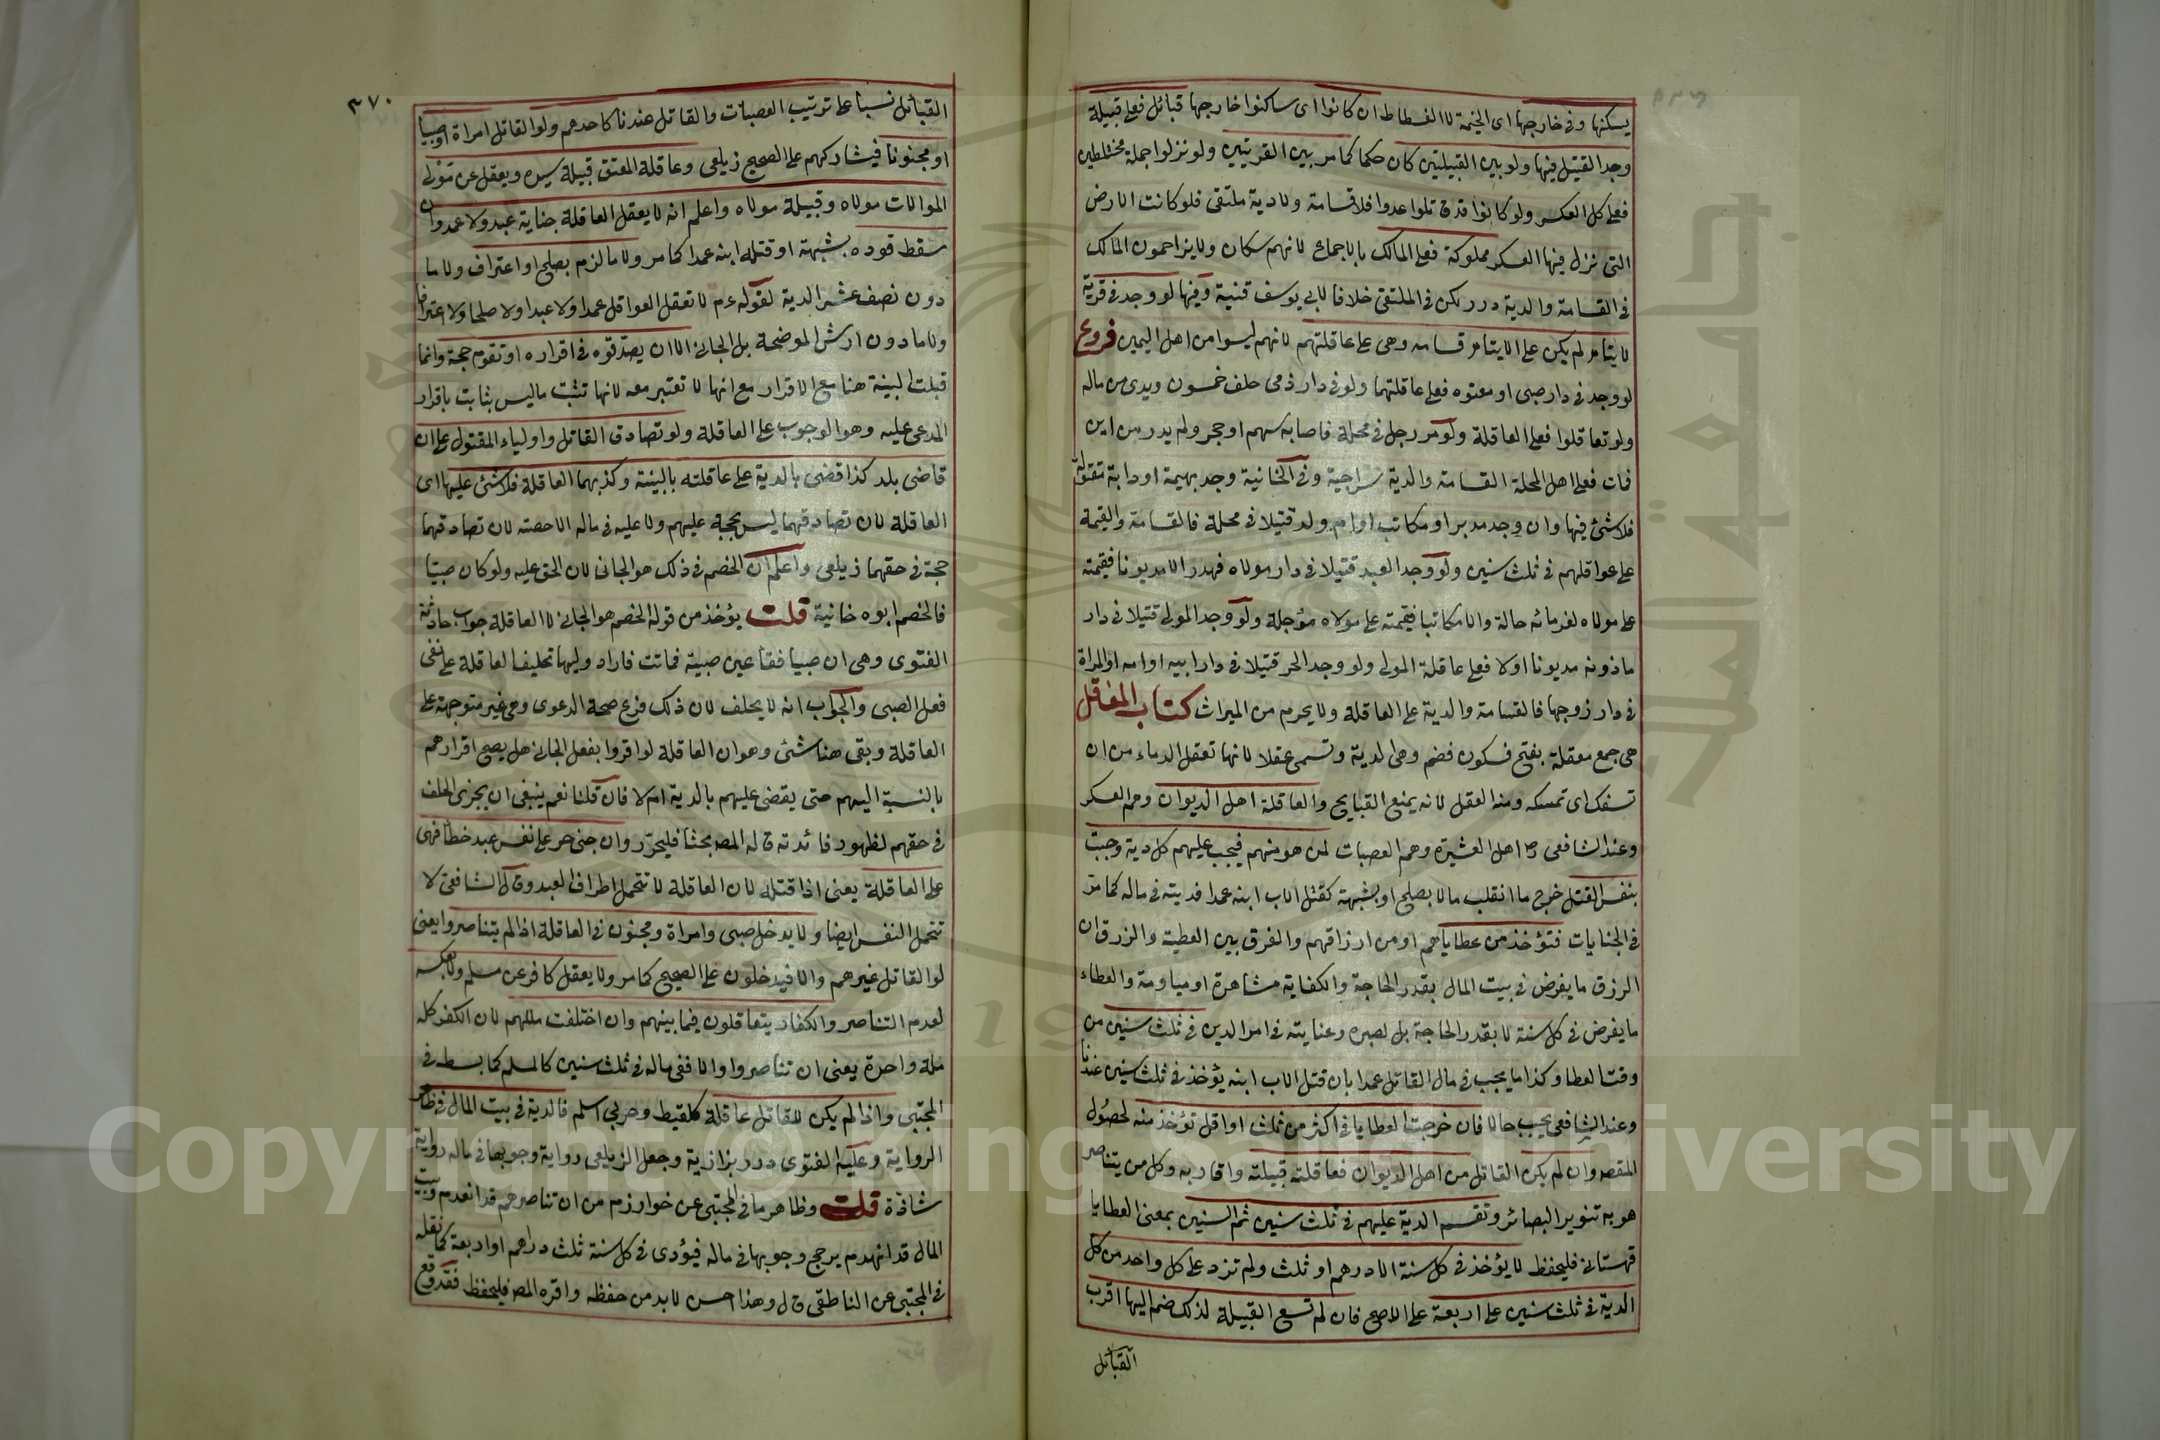 يسكنها وفي خارجها اى الخيمة لا الفسطاط ان كانوا اى ساكنوا خارجها قبائل فعلى قبيلة
وجد القتيل فيها ولو بين القبيلتين كان حكما كما مر بين القريتين ولو نزلوا جملة مختلطين
فعلى كل العسكر ولو كانوا قد قاتلوا عدوا فلا قسامة ولا دية ملتقى فلو كانت الارض
التى نزل فيها العسكر مملوكة فعلى المالك بالاجماع لانهم سكان ولا يزاحمون المالك
في القسامة والدية درر لكن في الملتقى خلافا لابي يوسف قنية وفيها لو وجد في قرية
لايتام لم يكن على الايتام قسامة وهى على عاقلتهم لانهم ليسوا من اهل اليمين فروع
لو وجد في دار صبى او معتوه فعلى عاقلتهما ولو في دار ذمى حلف خمسون ويدى من ماله
ولو تعاقلوا فعلى العاقلة ولو مر رجل في محلة فاصابه سهم او حجر ولم يدر من اين
فمات فعلى اهل المحلة القسامة والدية سراجية وفي الخانية وجد بهيمة او دابة مقتولة
فلا شئ فيها وان وجد مدبر او مكاتب او ام ولد قتيلا في محلة فالقسامة والقيمة
على عواقلهم في ثلث سنين ولو وجد العبد قتيلا في دار مولاه فهدر الا مديونا فقيمته
على مولاه لغرمائه حالة والا مكاتبا فقيمته على مولاه مؤجلة ولو وجد المولى قتيلا في دار
ماذونه مديونا اولا فعلى عاقلة المولى ولو وجد الحر قتيلا في دار ابيه او امه او المراة
في دار زوجها فالقسامة والدية على العاقلة ولا يحرم من الميراث كتاب المعاقل
هى جمع معقلة بفتح فسكون فضم وهى الدية وتسمى عقلا لانها تعقل الدماء من ان
تسفك اى تمسكه ومنه العقل لانه يمنع القبايح والعاقلة اهل الديوان وهم العسكر
وعند الشافعى رح اهل العشيرة وهم العصبات لمن هو منهم فيجب عليهم كل دية وجبت
بنفس القتل خرج ما انقلب مالا بصلح او بشبهة كقتل الاب ابنه عمدا فديته في ماله كما مر
في الجنايات فتؤخذ من عطاياهم او من ارزاقهم والفرق بين العطية والرزق ان
الرزق ما يفرض في بيت المال بقدر الحاجة والكفاية مشاهرة او مياومة والعطاء
ما يفرض في كل سنة لا بقدر الحاجة بل لصبره وعنايته في امر الدين في ثلث سنين من
وقت العطا وكذا ما يجب في مال القاتل عمدا بان قتل الاب ابنه يؤخذ في ثلث سنين عندنا
وعند الشافعى يجب حالا فان خرجت العطايا في اكثر من ثلث او اقل تؤخذ منه لحصول
المقصود وان لم يكن القاتل من اهل الديوان فعاقلته قبيلته واقاربه وكل من يتناصر
هو به تنوير البصائر وتقسم الدية عليهم في ثلث سنين ثم السنين بمعنى العطايا
قهستانى فليحفظ لا يؤخذ في كل سنة الا درهم او ثلث ولم تزد على كل واحد من كل
الدية في ثلث سنين على اربعة على الاصح فان لم تسع القبيلة لذلك ضم اليها اقرب
القبائل
٣٧٠
القبائل نسبا على ترتيب العصبات والقاتل عندنا كاحدهم ولو القاتل امراة او صبيا
او مجنونا فيشاركهم على الصحيح زيلعى وعاقلة المعتق قبيلة سيده ويعقل عن مولى
الموالات مولاه وقبيلة مولاه واعلم انه لا يعقل العاقلة جناية عبد ولا عمد وان
سقط قوده بشبهة او قتله ابنه عمدا كما مر ولا ما لزم بصلح او اعتراف ولا ما
دون نصف عشر الدية لقوله عم لا تعقل العواقل عمدا ولا عبدا ولا صلحا ولا اعترافا
ولا ما دون ارش الموضحة بل الجانى الا ان يصدقوه في اقراره او تقوم حجة وانما
قبلت البينة هنا مع الاقرار مع انها لا تعتبر معه لانها تثبت ما ليس بثابت باقرار
المدعى عليه وهو الوجوب على العاقلة ولو تصادق القاتل واولياء المقتول على ان
قاضى بلد كذا قضى بالدية على عاقلته بالبينة وكذبهما العاقلة فلا شئ عليها اى
العاقلة لان تصادقهما ليس بحجة عليهم ولا عليه في ماله الا حصته لان تصادقهما
حجة في حقهما زيلعى واعلم ان الخصم في ذلك هو الجانى لان الحق عليه ولو كان صبيا
فالخصم ابوه خانية قلت يؤخذ من قوله الخصم هو الجانى لا العاقلة جواب حادثة
الفتوى وهى ان صبيا فقأ عين صبية فماتت فاراد وليها تحليف العاقلة على نفى
فعل الصبى والجواب انه لا يحلف لان ذلك فرع صحة الدعوى وهى غير متوجهة على
العاقلة وبقى هنا شئ وهو ان العاقلة لو اقروا بفعل الجانى هل يصح اقرارهم
بالنسبة اليهم حتى يقضى عليهم بالدية ام لا فان قلنا نعم ينبغى ان يجرى الحلف
في حقهم لظهور فائدته قاله المص بحثا فليحرر وان جنى حر على نفس عبد خطأ فهى
على العاقلة يعنى اذا قتله لان العاقلة لا تتحمل اطراف العبد وقال الشافعى لا
تتحمل النفس ايضا ولا يدخل صبى وامراة ومجنون في العاقلة اذا لم يتناصروا يعنى
لو القاتل غيرهم والا فيدخلون على الصحيح كما مر ولا يعقل كافر عن مسلم ولا بعكسه
لعدم التناصر والكفار يتعاقلون فيما بينهم وان اختلفت مللهم لان الكفر كله
ملة واحدة يعنى ان تناصروا والا ففى ماله في ثلث سنين كالمسلم كما بسط في
المجتبى واذا لم يكن للقاتل عاقلة كلقيط وحربى اسلم فالدية في بيت المال في ظاهر
الرواية وعليه الفتوى درر بزازية وجعل الزيلعى رواية وجوبها في ماله رواية
شاذة قلت وظاهر ما في المجتبى عن خوارزم من ان تناصرهم قد انعدم وبيت
المال قد انهدم يرجح وجوبها في ماله فيؤدى في كل سنة ثلث دراهم او اربعة كما نقله
في المجتبى عن الناطقى قال وهذا احسن لا بد من حفظه واقره المص فليحفظ فقد وقع
Copyright © King Saud University